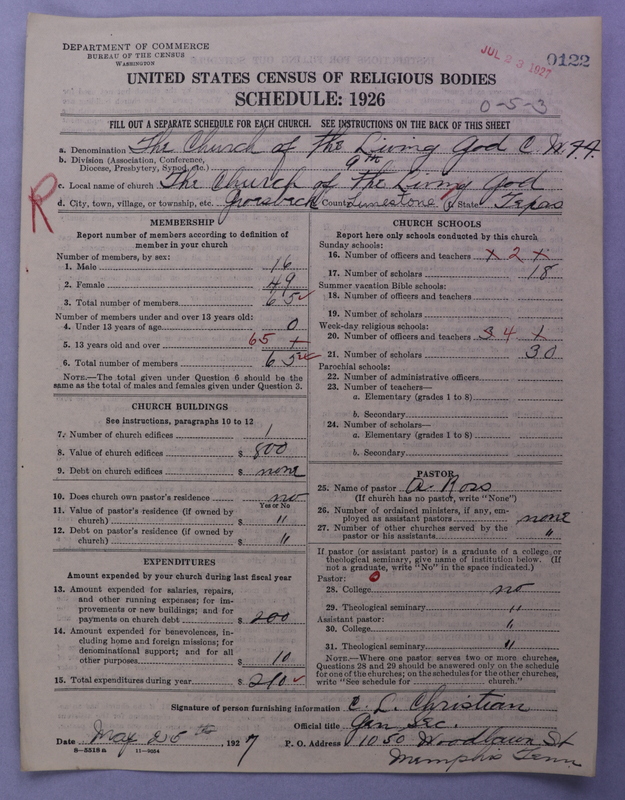 DEPARTMENT OF COMMERCE
BUREAU OF THE CENSUS
WASHINGTON
JUL 23 1927
0122
UNITED STATES CENSUS OF RELIGIOUS BODIES
SCHEDULE: 1926
0-5-3
FILL OUT A SEPARATE SCHEDULE FOR EACH CHURCH. SEE INSTRUCTIONS ON THE BACK OF THIS SHEET
a. Denomination The Church of the Living God C. W. F. F.
b. Division (Association, Conference, Diocese, Presbytery, Synod, etc.) 9th
c. Local name of church The Church of the Living God
R
d. City, town, village, or township, etc. Groesbeck County Limestone State Texas
MEMBERSHIP
Report number of members according to definition of member in your church
Number of members, by sex:
1. Male 16
2. Female 49
3. Total number of members 65
Number of members under and over 13 years old:
4. Under 13 years of age 0
5. 13 years old and over 65 x
6. Total number of members 65
NOTE.—The total given under Question 6 should be the same as the total of males and females given under Question 3.
CHURCH BUILDINGS
See instructions, paragraphs 10 to 12
7. Number of church edifices 1
8. Value of church edifices $ 800
9. Debt on church edifices $ none
10. Does church own pastor's residence no
Yes or No
11. Value of pastor's residence (if owned by church) $ "
12. Debt on pastor's residence (if owned by church) $ "
EXPENDITURES
Amount expended by your church during last fiscal year
13. Amount expended for salaries, repairs, and other running expenses; for improvements or new buildings; and for payments on church debt $ 200
14. Amount expended for benevolences, including home and foreign missions; for denominational support; and for all other purposes $ 10
15. Total expenditures during year $ 210
CHURCH SCHOOLS
Report here only schools conducted by this church
Sunday schools:
16. Number of officers and teachers x 2 x
17. Number of scholars 18
Summer vacation Bible schools:
18. Number of officers and teachers
19. Number of scholars
Week-day religious schools:
20. Number of officers and teachers 3 4 x
21. Number of scholars 30
Parochial schools:
22. Number of administrative officers
23. Number of teachers—
a. Elementary (grades 1 to 8)
b. Secondary
24. Number of scholars—
a. Elementary (grades 1 to 8)
b. Secondary
PASTOR
25. Name of pastor A. Ross
(If church has no pastor, write "None")
26. Number of ordained ministers, if any, employed as assistant pastors none
27. Number of other churches served by the pastor or his assistants "
If pastor (or assistant pastor) is a graduate of a college or theological seminary, give name of institution below. (If not a graduate, write "No" in the space indicated.)
Pastor:
28. College no
29. Theological seminary "
Assistant pastor:
30. College "
31. Theological seminary "
NOTE.—Where one pastor serves two or more churches, Questions 28 and 29 should be answered only on the schedule for one of the churches; on the schedules for the other churches, write "See schedule for church."
Signature of person furnishing information C. L. Christian
Official title Gen Sec.
Date May 25th, 1927
P. O. Address 1050 Woodlawn St
Memphis Tenn
8—5518a 11—9034